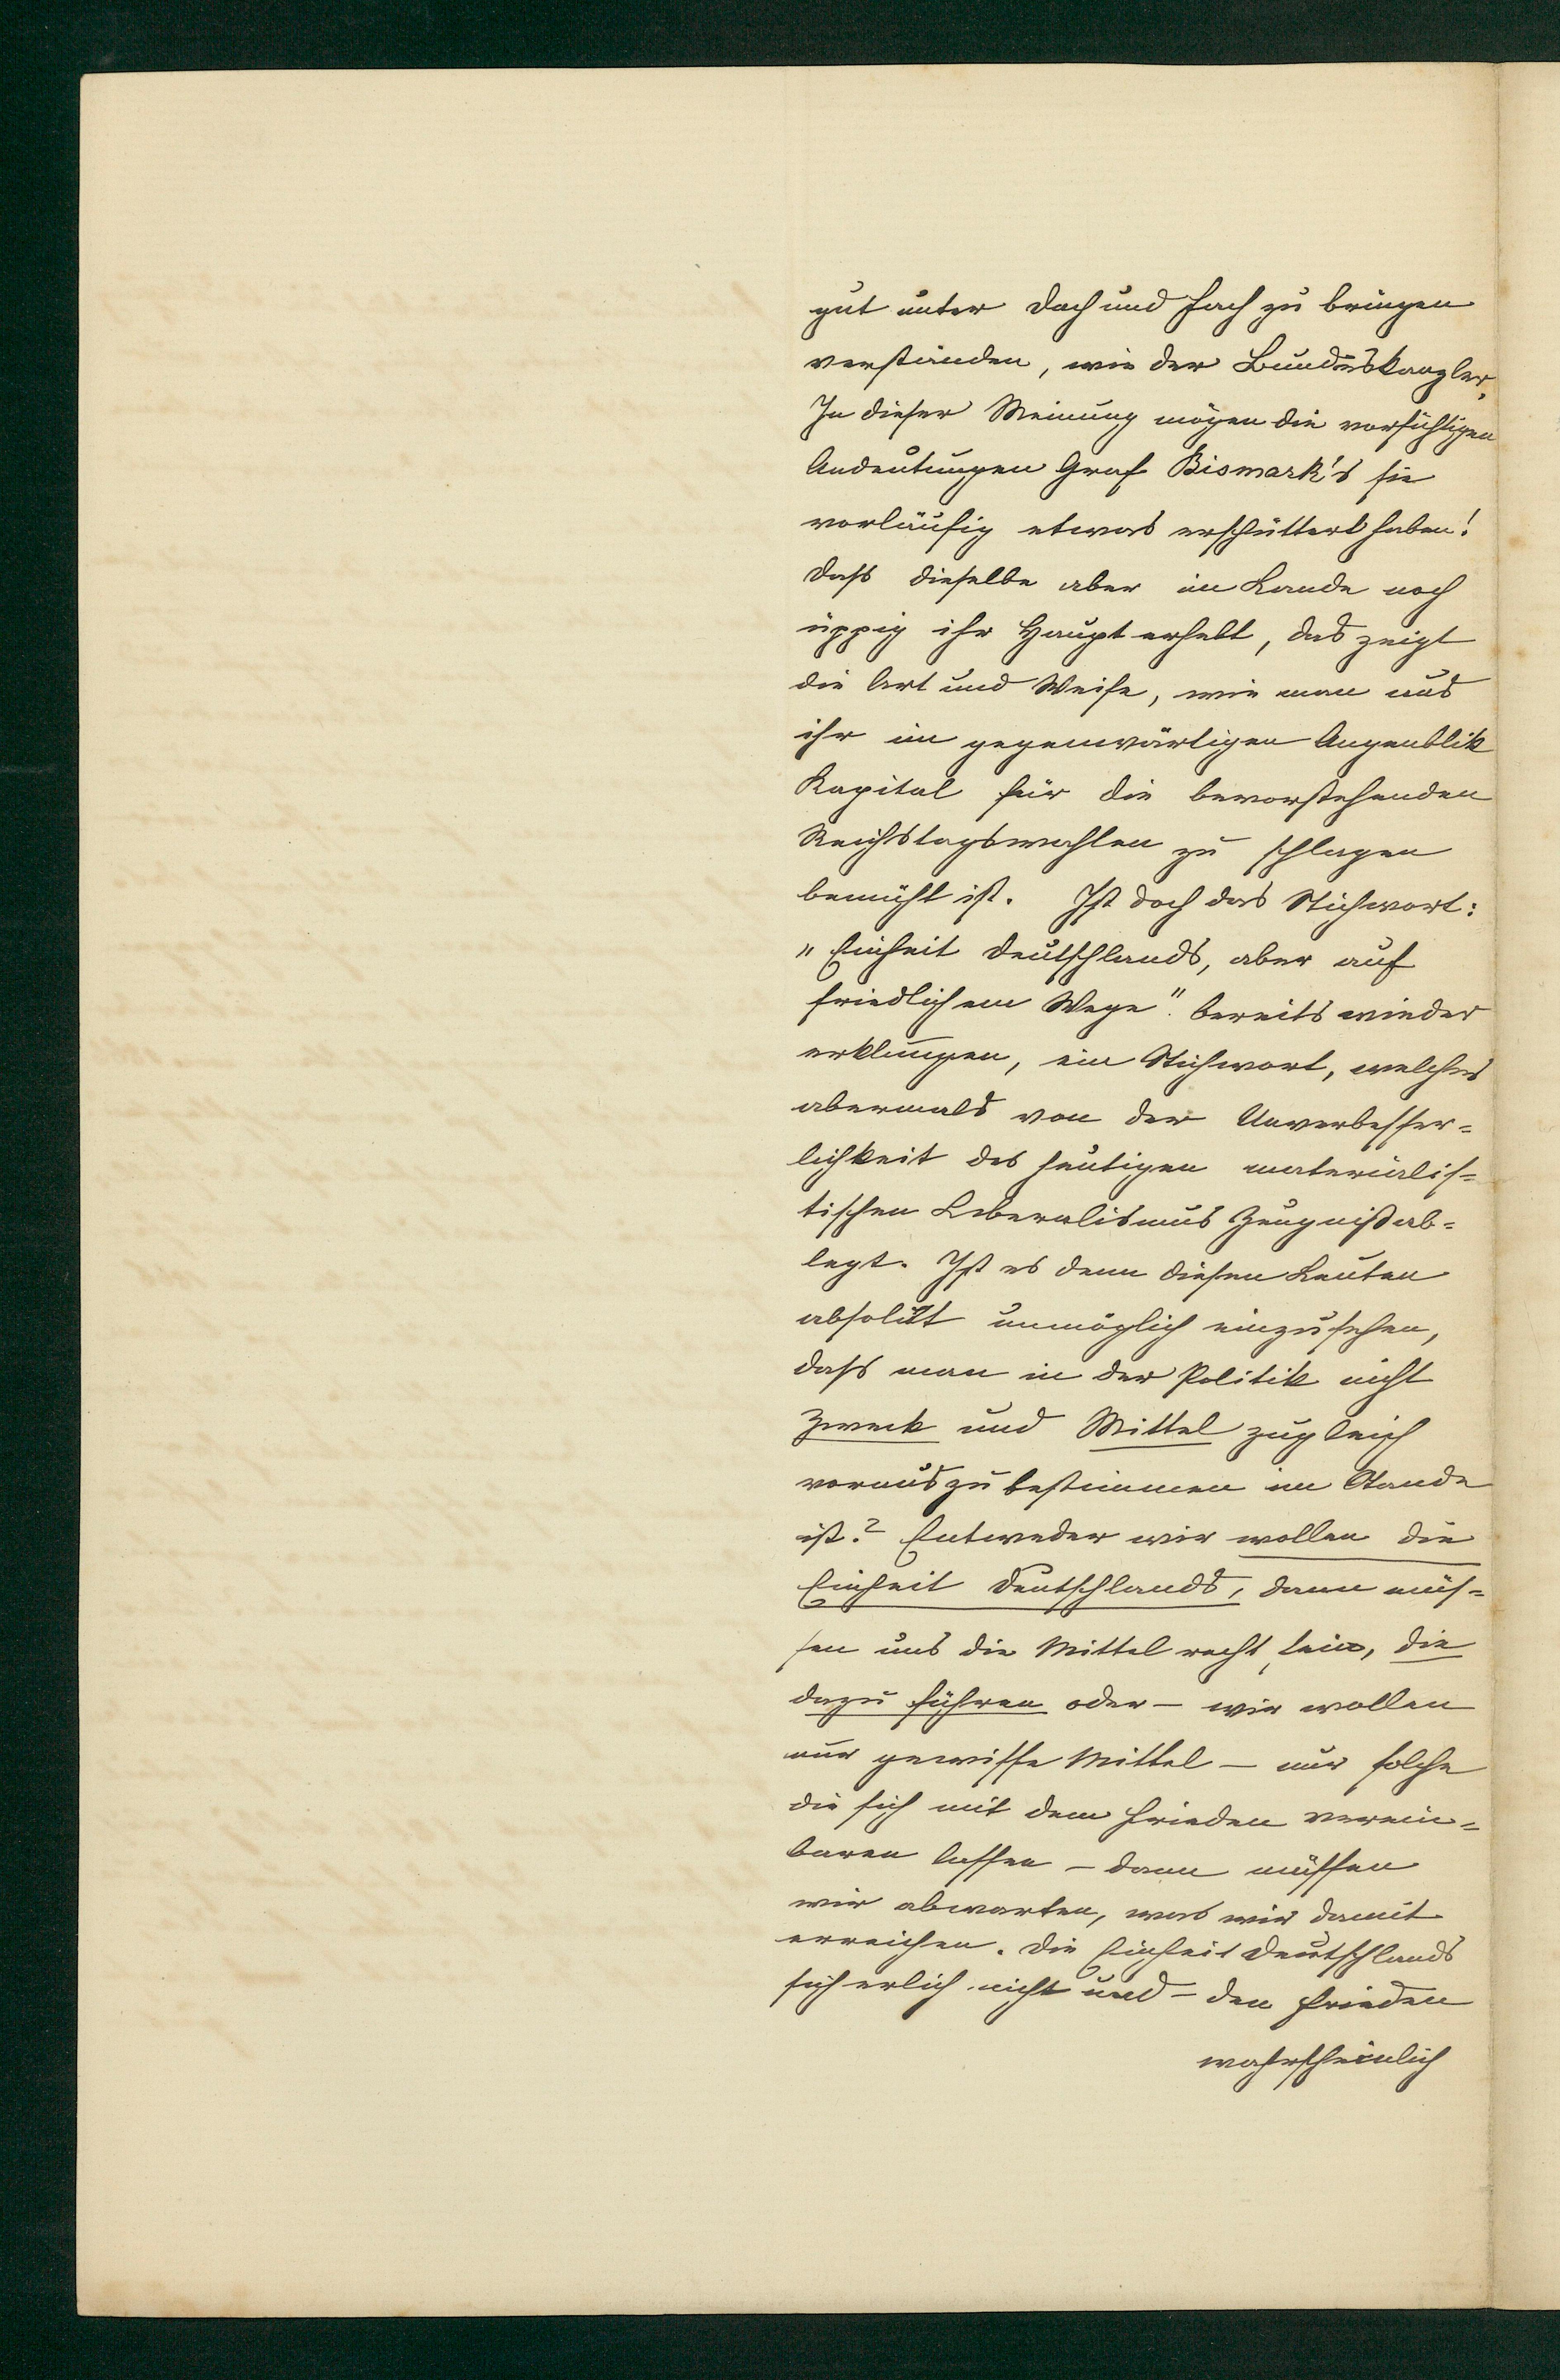 gut unter Dach und Fach zu bringen
verständen, wie der Bundeskanzler.
In dieser Meinung mögen die vorsichtigen
Andeutungen Graf Bismark's sie
vorläufig etwas erschüttert haben!
Daß dieselbe aber im Lande noch
üppig ihr Haupt erhebt, das zeigt
die Art und Weise, wie man aus
ihr im gegenwärtigen Augenblik
Kapital für die bevorstehenden
Reichstagswahlen zu schlagen
bemüht ist. Ist doch das Stichwort:
"Einheit Deutschlands, aber auf
friedlichem Wege". bereits wieder
erklungen, ein Stichwort, welches
abermals von der Unverbesser=
lichkeit des heutigen materialis=
tischen Liberalismus Zeugniß ab=
legt. Ist es denn diesen Leuten
absolut unmöglich einzusehen,
daß man in der Politik nicht
Zweck und Mittel zugleich
vorauszubestimmen im Stande
ist? Entweder wir wollen die
Einheit Deutschlands, dann müs=
sen uns die Mittel recht sein, die
dazu führen oder – wir wollen
nur gewisse Mittel – nur solche
die sich mit dem Frieden verein=
baren lassen – dann müssen
wir abwarten, was wir damit
erreichen. Die Einheit Deutschlands
sicherlich nicht und – den Frieden
wahrscheinlich